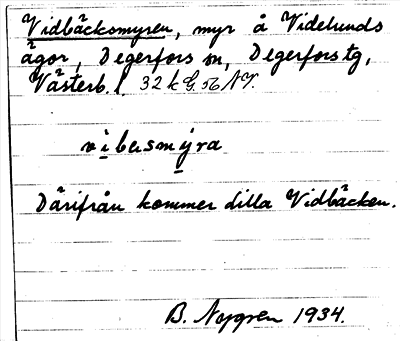 Vidbäcksmyren, myr å Videlunds
ägor, Degerfors sn, Degerfors tg,
Västerb. l. 32 k G. 56 NV.
vibusmyra
Därifrån kommer dilla Vidbäcken.
B. Nygren 1934.